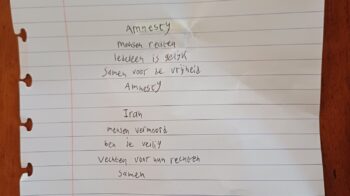 Amnesty
mensen rechten
Iedereen is gelijk
Samen voor de vrijheid
Amnesty
Iran
mensen vermoord
ben je veilig
vechten voor hun rechten
Samen